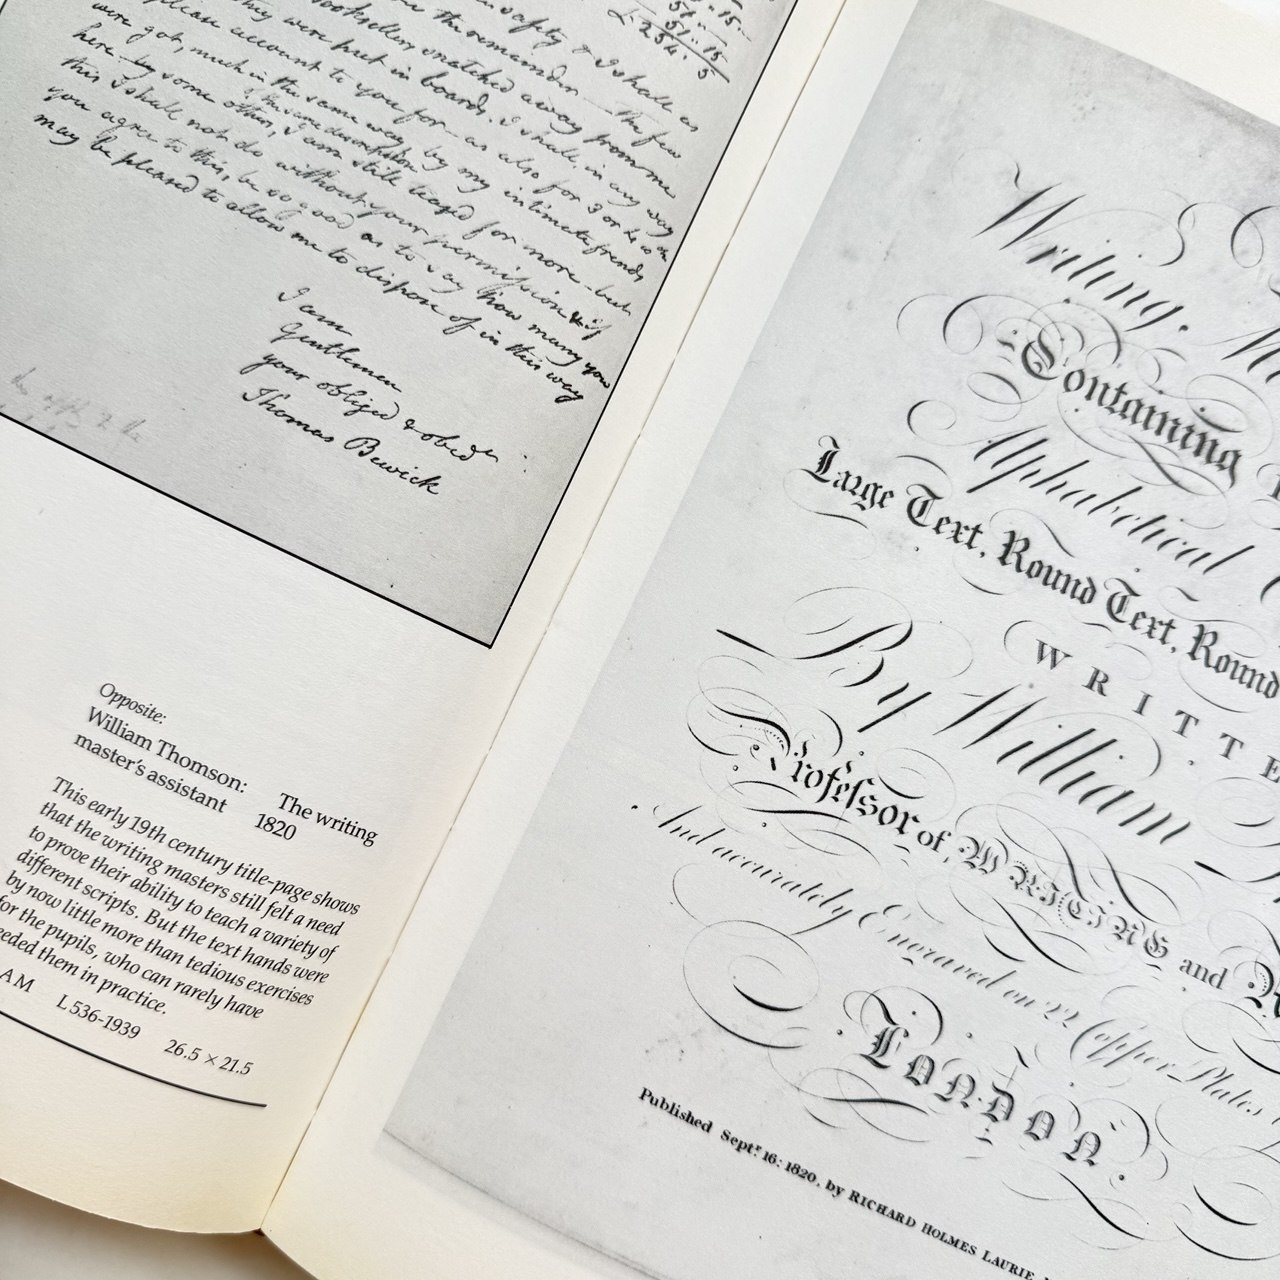 15
51 ·· 15
£ 254 · 5
in safety & I shall as
the remainder — the few
Booksellers snatched away from me
they were put in boards. I shall in any way
please account to you for — as also for 3 or 4
were got, much in the same way, by my intimate friends
the same description
here by some other, I am still teazed for more but
this I shall not do without your permission & if
you agree to this, be so good as to say how many you
may be pleased to allow me to dispose of in this way
I am
Gentlemen
your obliged & obed
Thomas Bewick
Opposite:
William Thomson: The writing
master's assistant 1820
This early 19th century title-page shows
that the writing masters still felt a need
to prove their ability to teach a variety of
different scripts. But the text hands were
by now little more than tedious exercises
for the pupils, who can rarely have
needed them in practice.
AM L 536-1939 26.5 × 21.5
Writing,
Containing
Alphabetical
Large Text, Round Text, Round
WRITTE
By William
Professor of WRITING and
And accurately Engraved on 22 Copper Plates
LONDON.
Published Septr. 16: 1820, by RICHARD HOLMES LAURIE